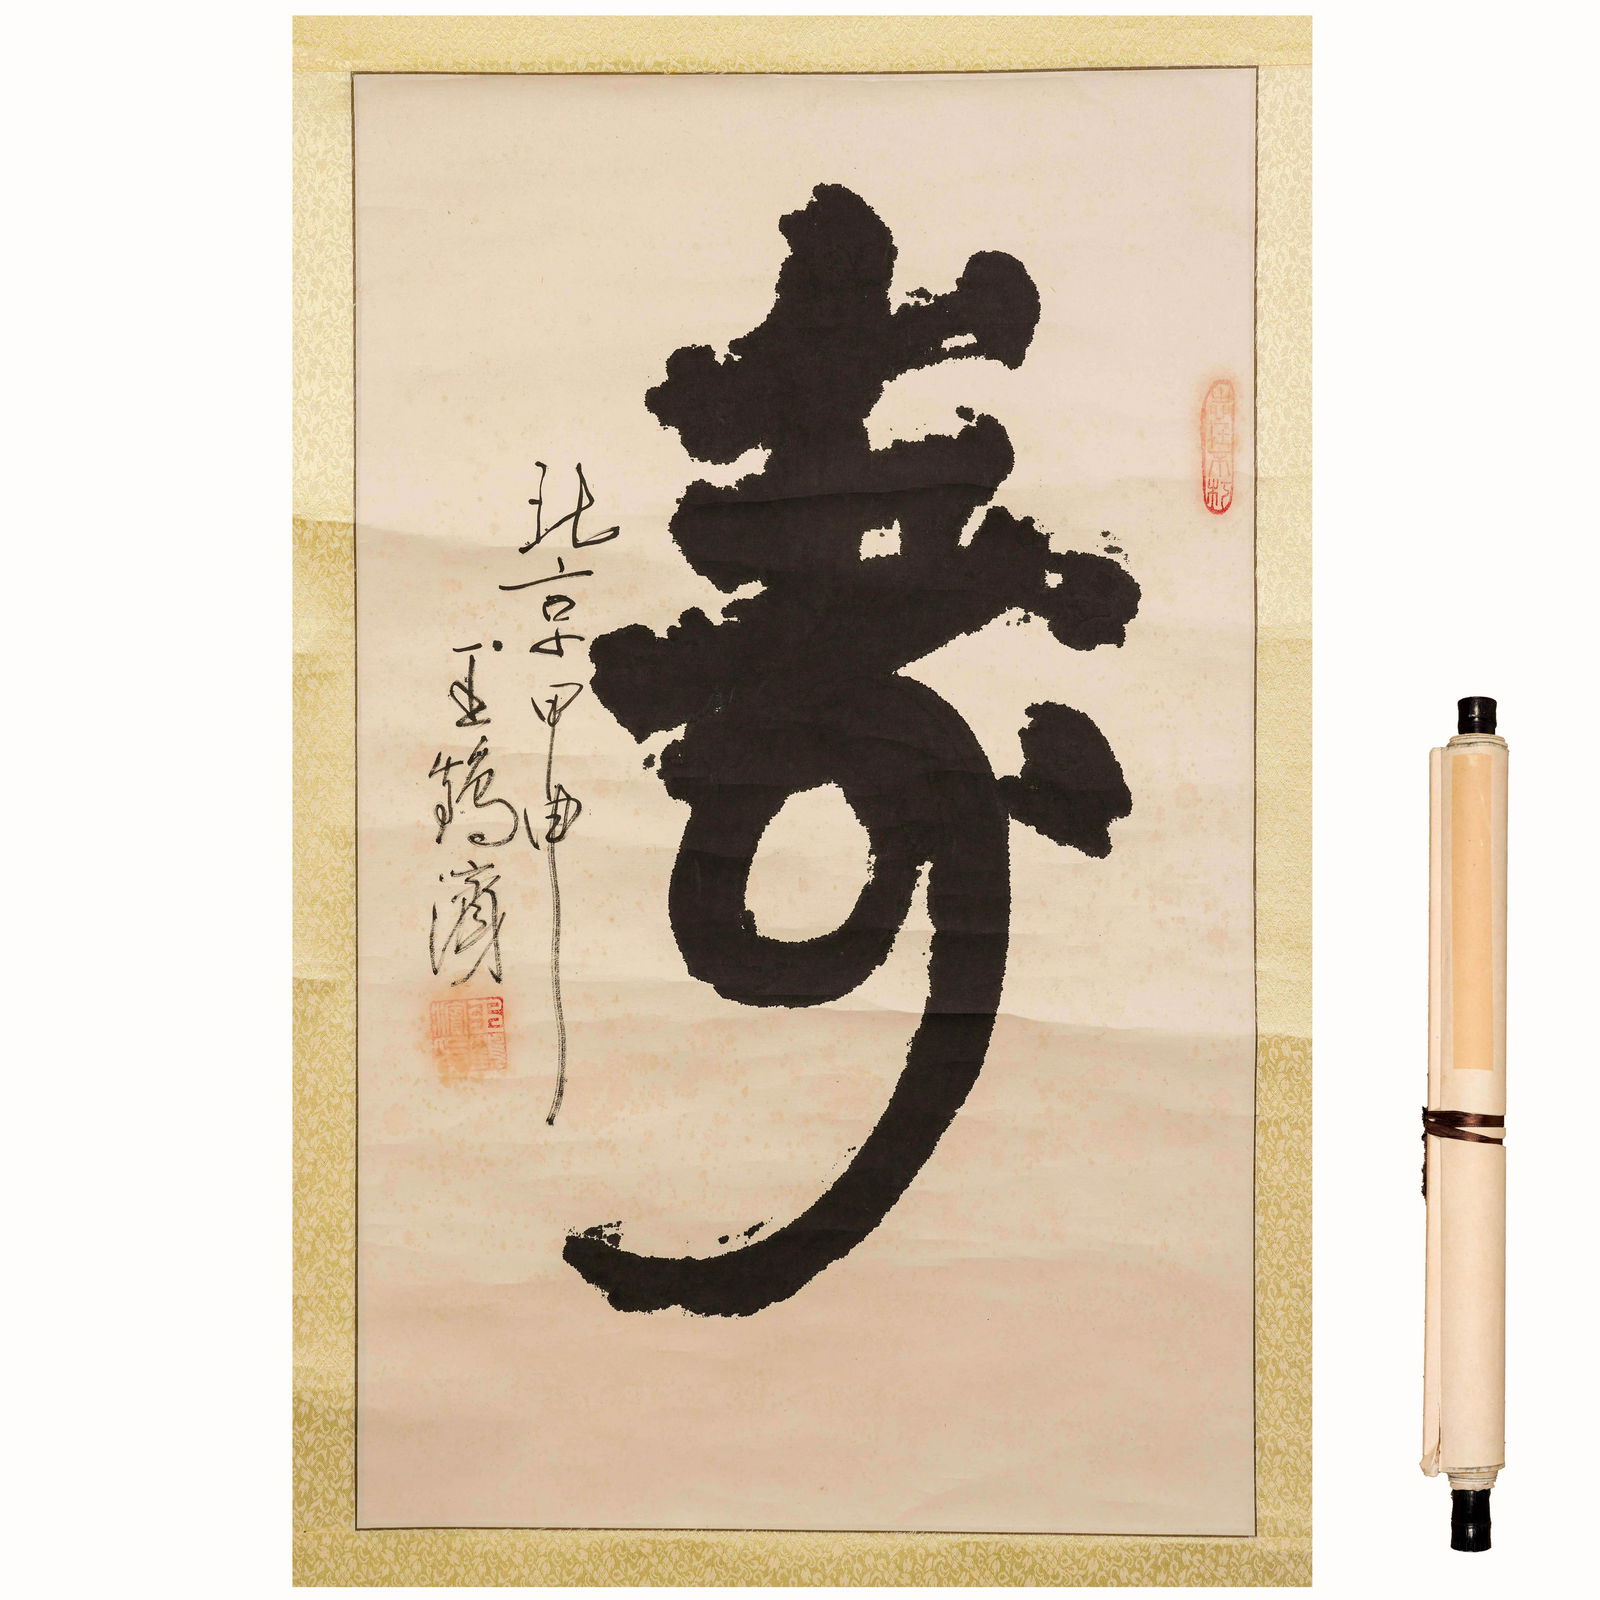 寿
北京甲申
王鶴濱